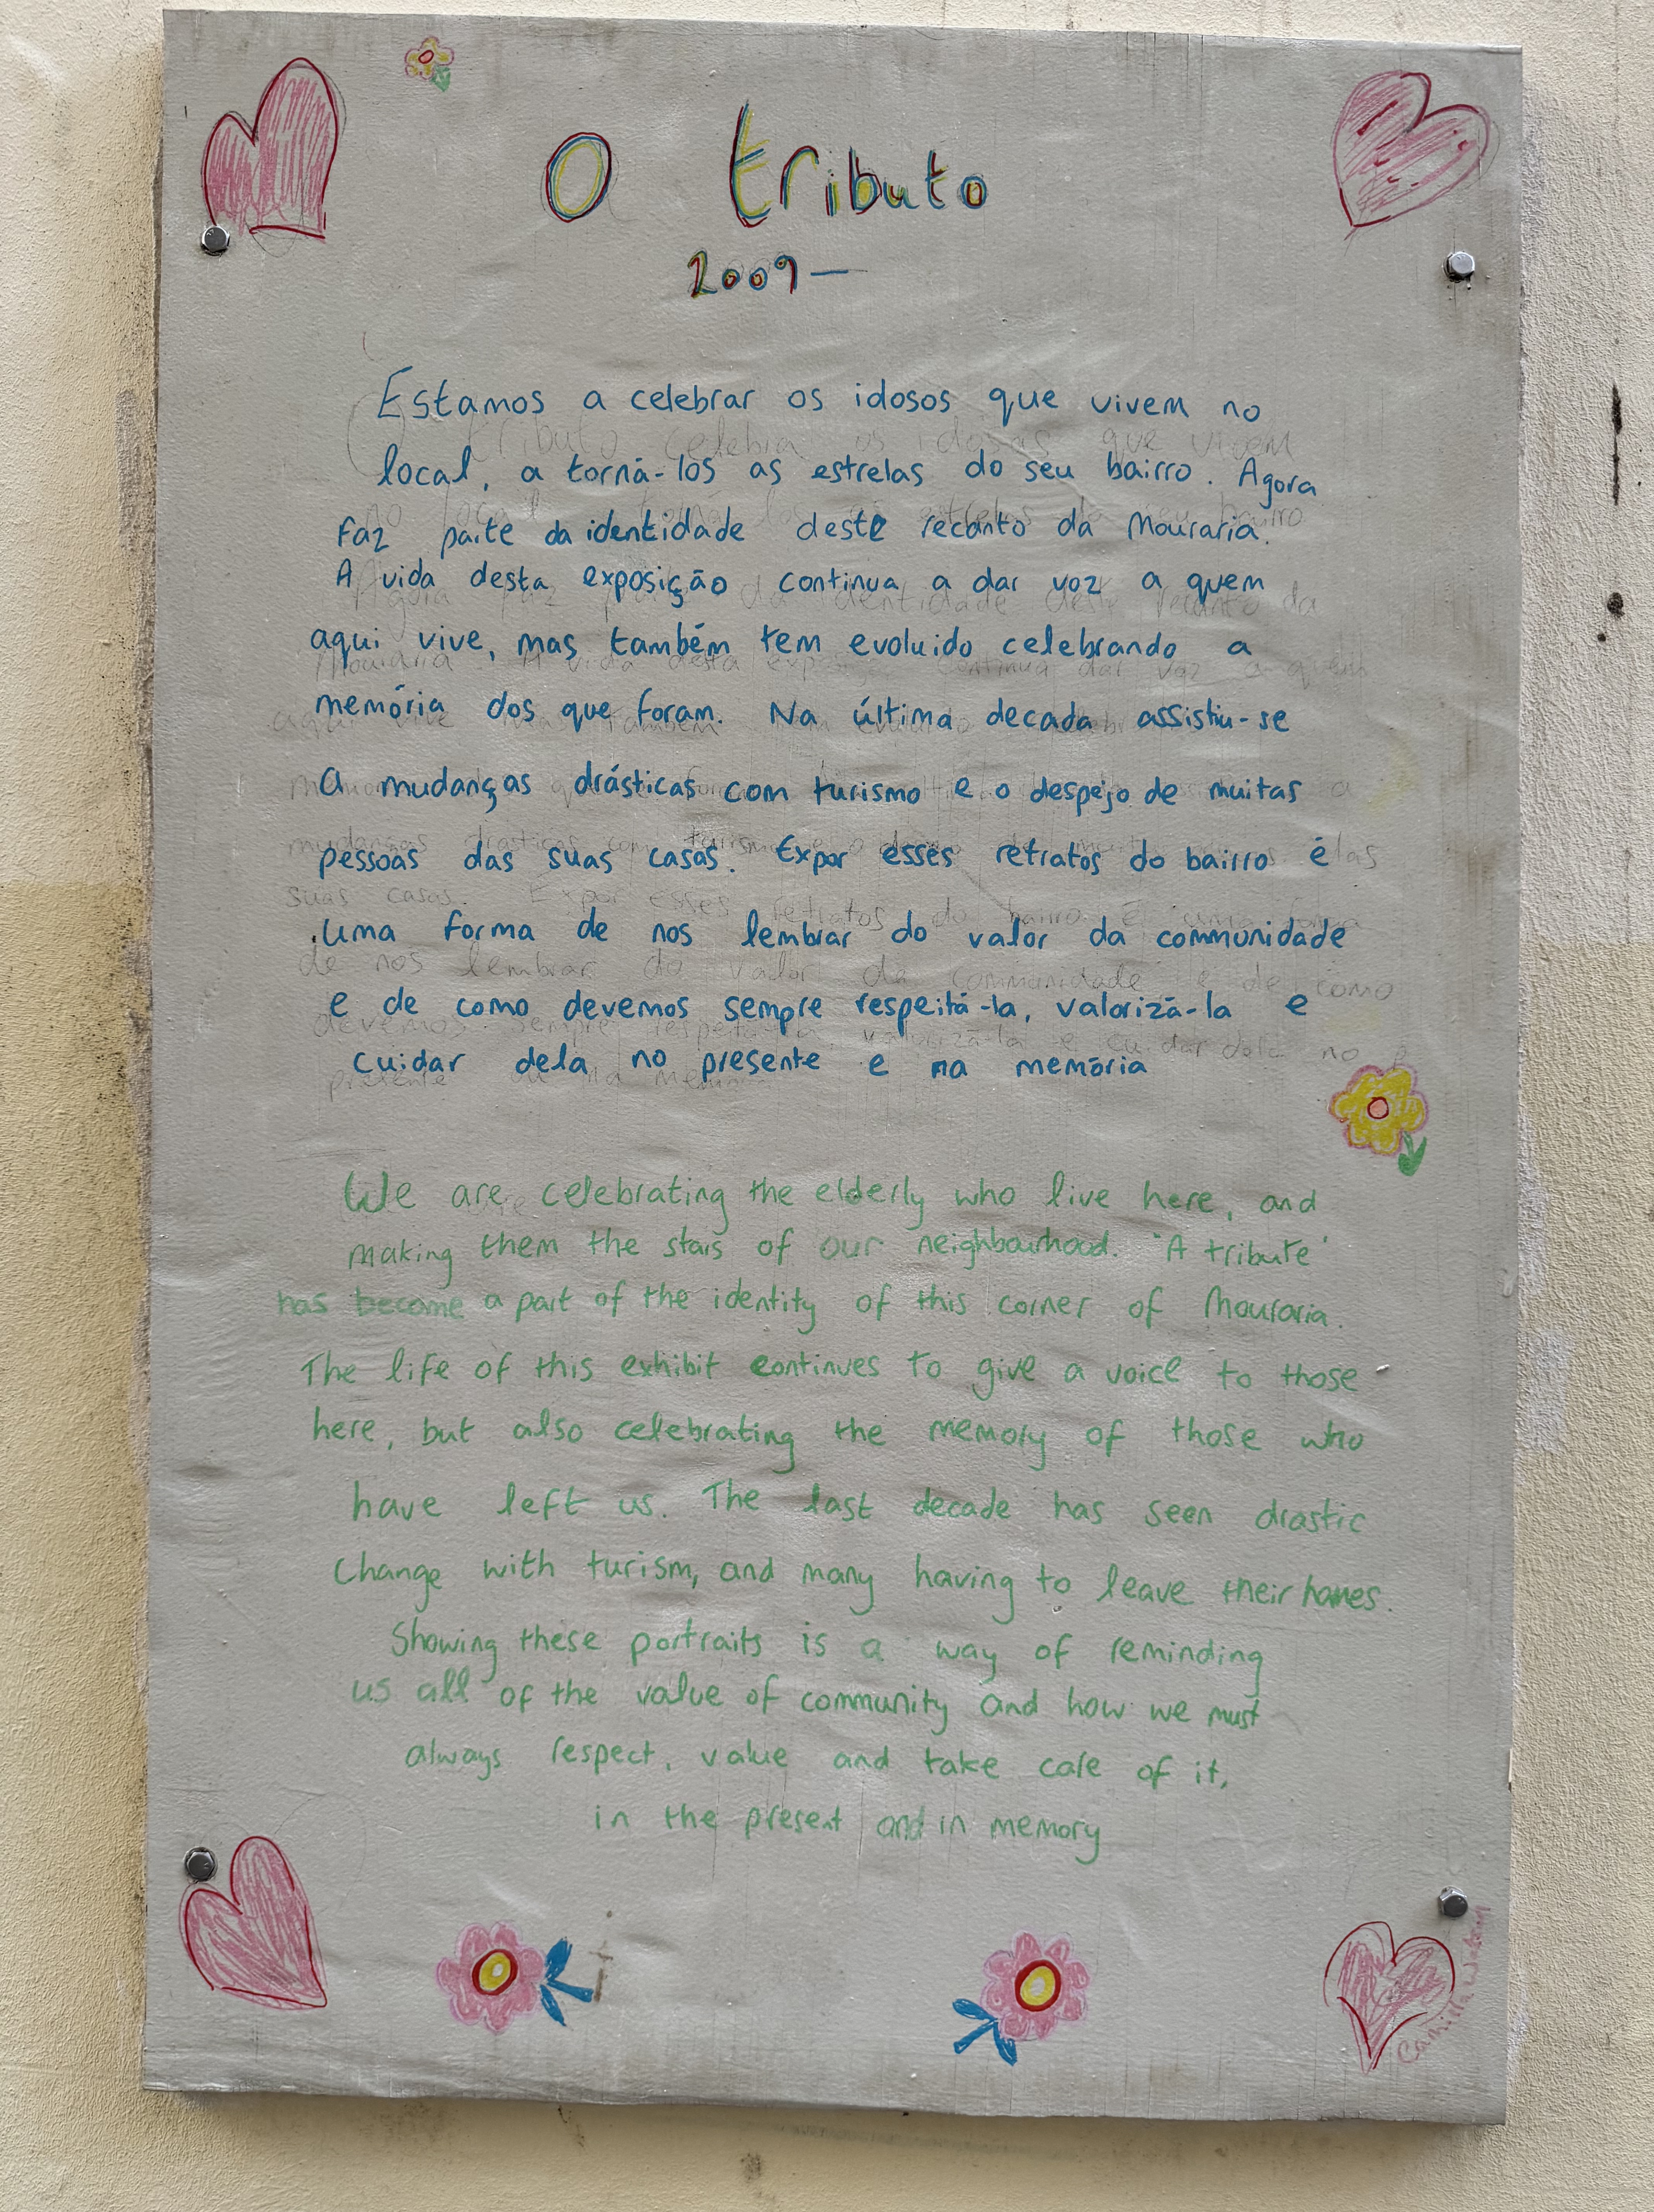 O tributo
2009 —
Estamos a celebrar os idosos que vivem no
local, a torná-los as estrelas do seu bairro. Agora
faz parte da identidade deste recanto da Mouraria.
A vida desta exposição continua a dar voz a quem
aqui vive, mas também tem evoluido celebrando a
memória dos que foram. Na última decada assistiu-se
a mudanças drásticas com turismo e o despejo de muitas
pessoas das suas casas. Expor esses retratos do bairro é
uma forma de nos lembrar do valor da communidade
e de como devemos sempre respeitá-la, valorizá-la e
cuidar dela no presente e na memória
We are celebrating the elderly who live here, and
making them the stars of our neighbourhood. 'A tribute'
has become a part of the identity of this corner of Mouraria.
The life of this exhibit continues to give a voice to those
here, but also celebrating the memory of those who
have left us. The last decade has seen drastic
change with turism, and many having to leave their homes.
Showing these portraits is a way of reminding
us all of the value of community and how we must
always respect, value and take care of it,
in the present and in memory
Camilla Watson